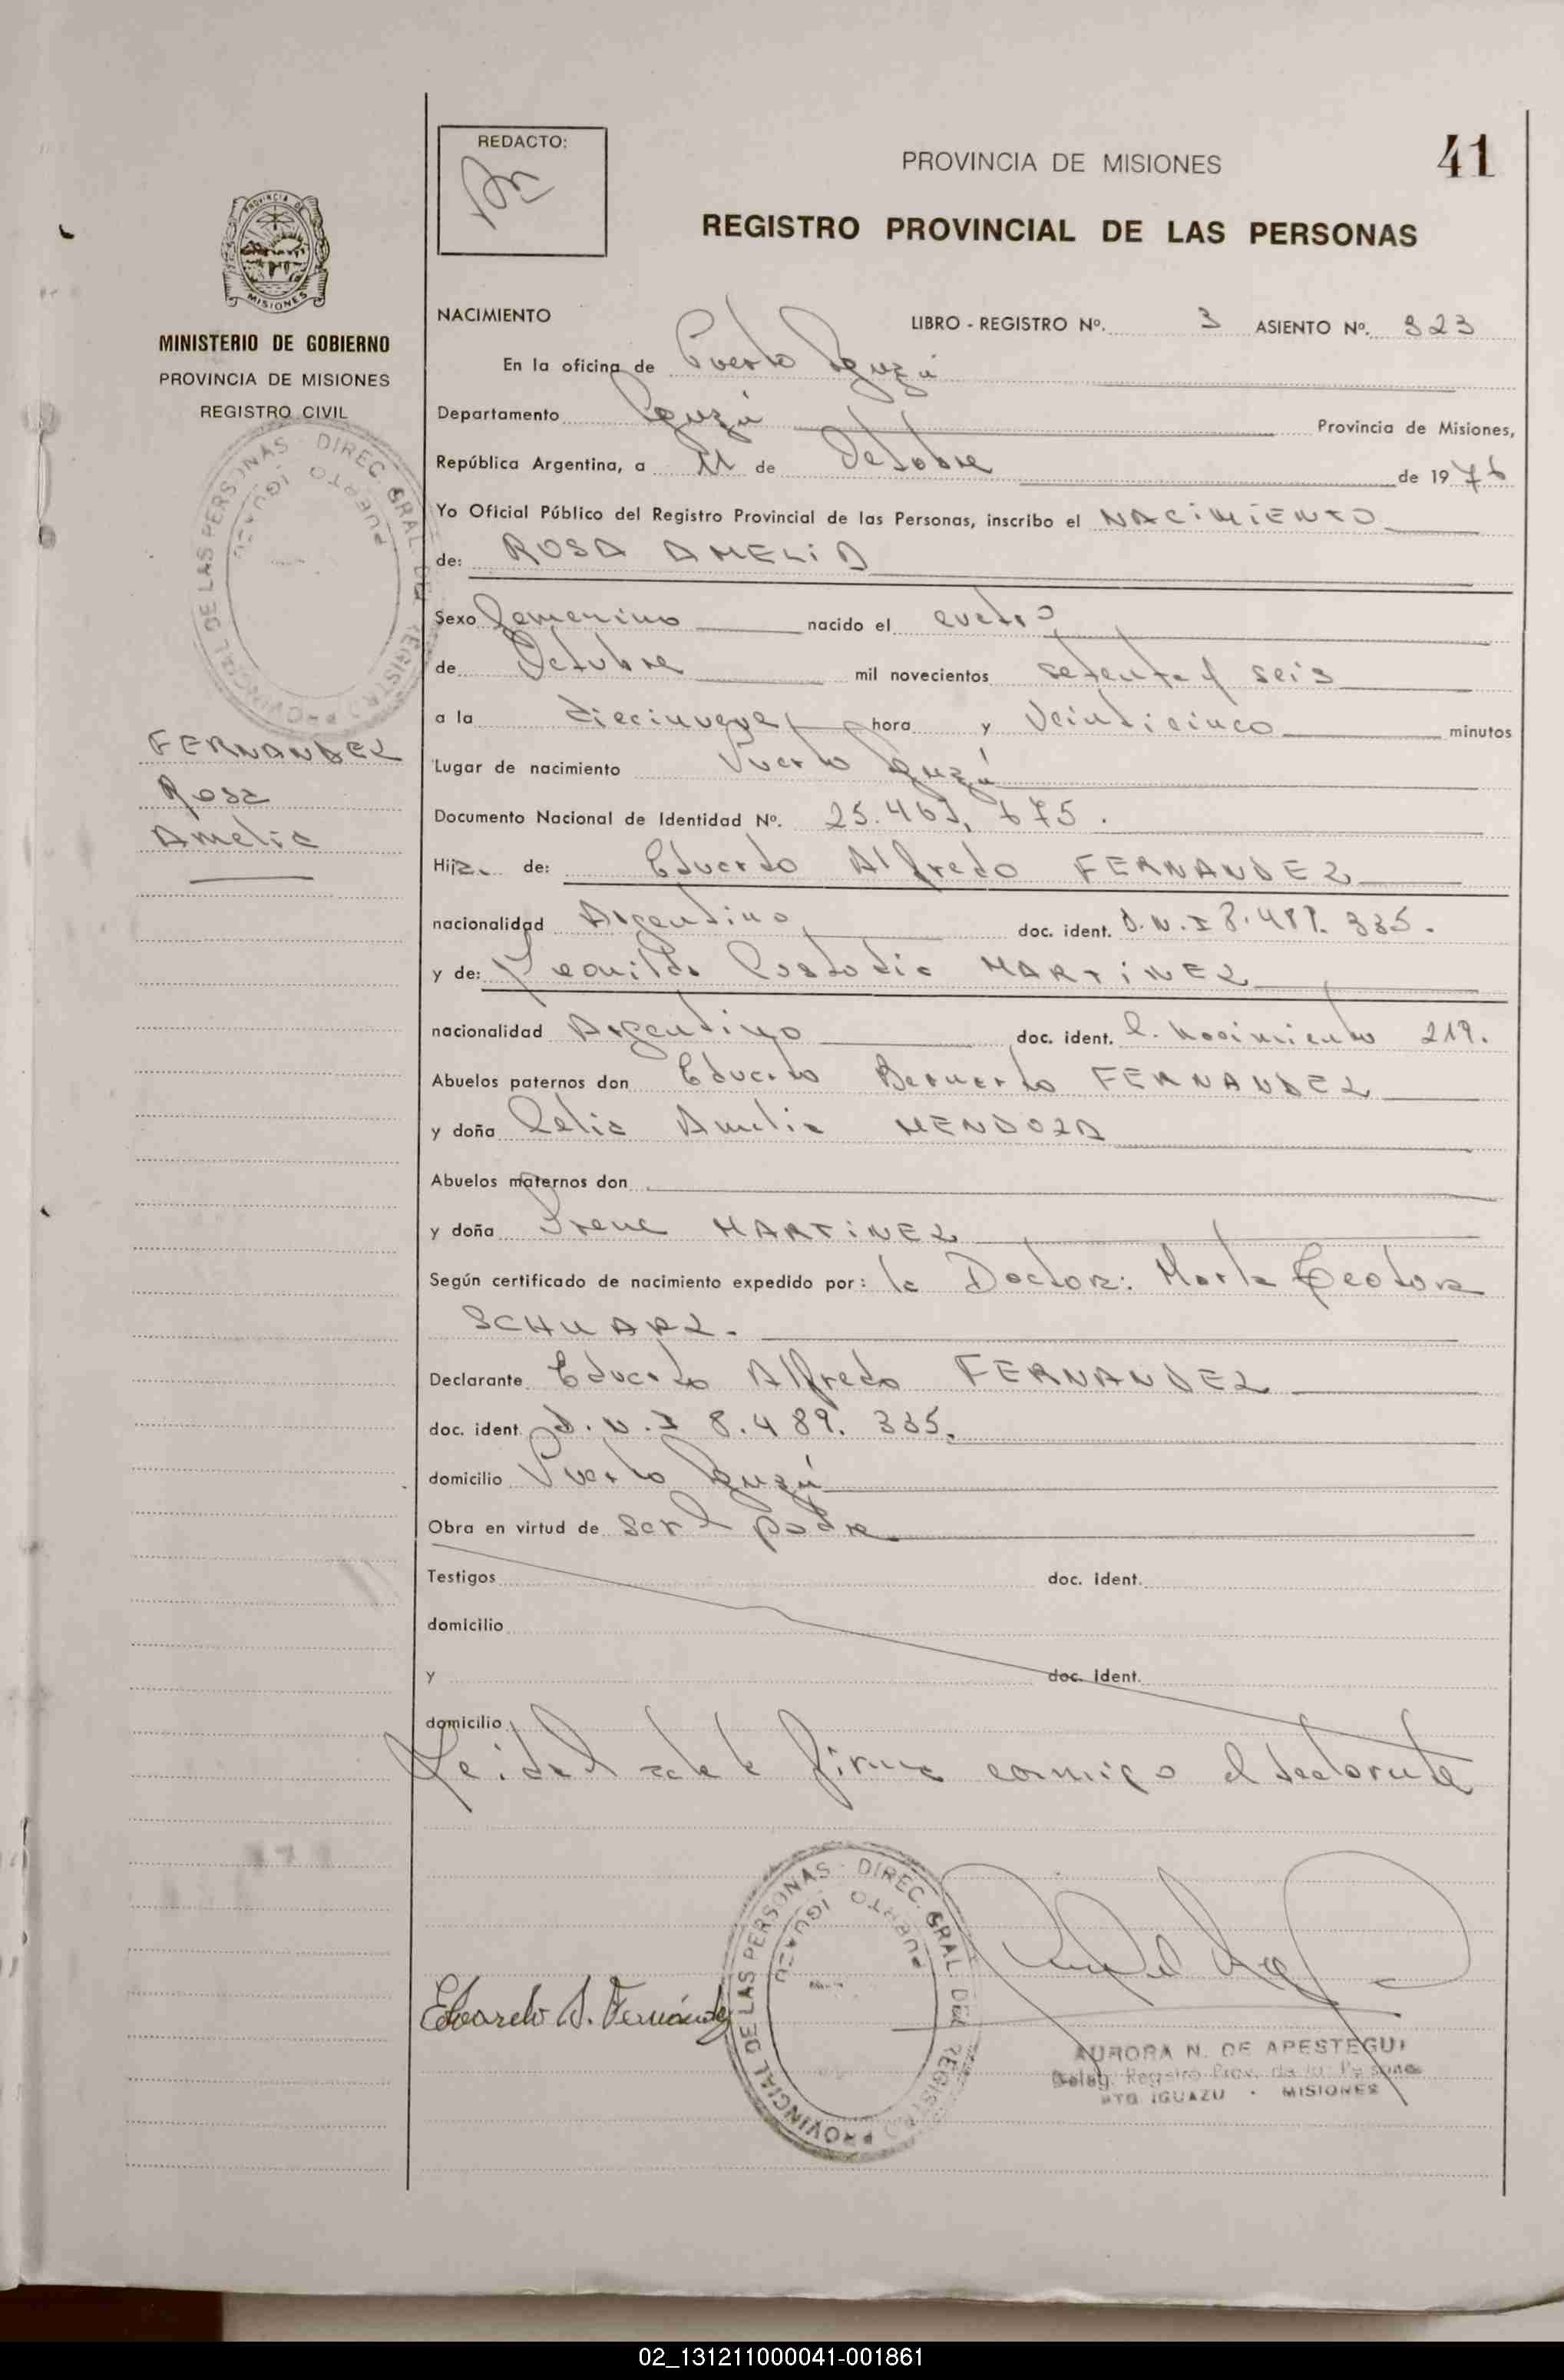 REDACTO:
PROVINCIA DE MISIONES
41
REGISTRO PROVINCIAL DE LAS PERSONAS
PROVINCIA DE
MISIONES
MINISTERIO DE GOBIERNO
PROVINCIA DE MISIONES
REGISTRO CIVIL
DIREC. GRAL. DEL REGISTRO PROVINCIAL DE LAS PERSONAS
PUERTO IGUAZU
FERNANDEZ
Rosa
Amelia
NACIMIENTO LIBRO - REGISTRO Nº. 3 ASIENTO Nº. 323
En la oficina de Puerto Iguazú
Departamento Iguazú Provincia de Misiones,
República Argentina, a 11 de Octubre de 1976
Yo Oficial Público del Registro Provincial de las Personas, inscribo el NACIMIENTO
de: ROSA AMELIA
Sexo Femenino nacido el cuatro
de Octubre mil novecientos setenta y seis
a la diecinueve hora y Veinticinco minutos
Lugar de nacimiento Puerto Iguazú
Documento Nacional de Identidad Nº. 675.
Hija de: Eduardo Alfredo FERNANDEZ
nacionalidad Argentino doc. ident. D.N.I 8.489. 335.
y de: Custodia MARTINEZ
nacionalidad Argentina doc. ident. Nacimiento 219.
Abuelos paternos don Eduardo Bernardo FERNANDEZ
y doña Celia Amelia MENDOZA
Abuelos maternos don
y doña Irene MARTINEZ
Según certificado de nacimiento expedido por: la Doctora: Marta Teodora
SCHWARZ.
Declarante Eduardo Alfredo FERNANDEZ
doc. ident. D.N.I 8.489. 335.
domicilio Puerto Iguazú
Obra en virtud de ser el padre
Testigos doc. ident.
domicilio
y doc. ident.
domicilio
Leida el acta la firma conmigo el declarante
DIREC. GRAL. DEL REGISTRO PROVINCIAL DE LAS PERSONAS
PUERTO IGUAZU
Eduardo A. Fernández
AURORA N. DE APESTEGUI
Deleg. Registro Prov. de las Personas
PTO IGUAZU - MISIONES
02_131211000041-001861